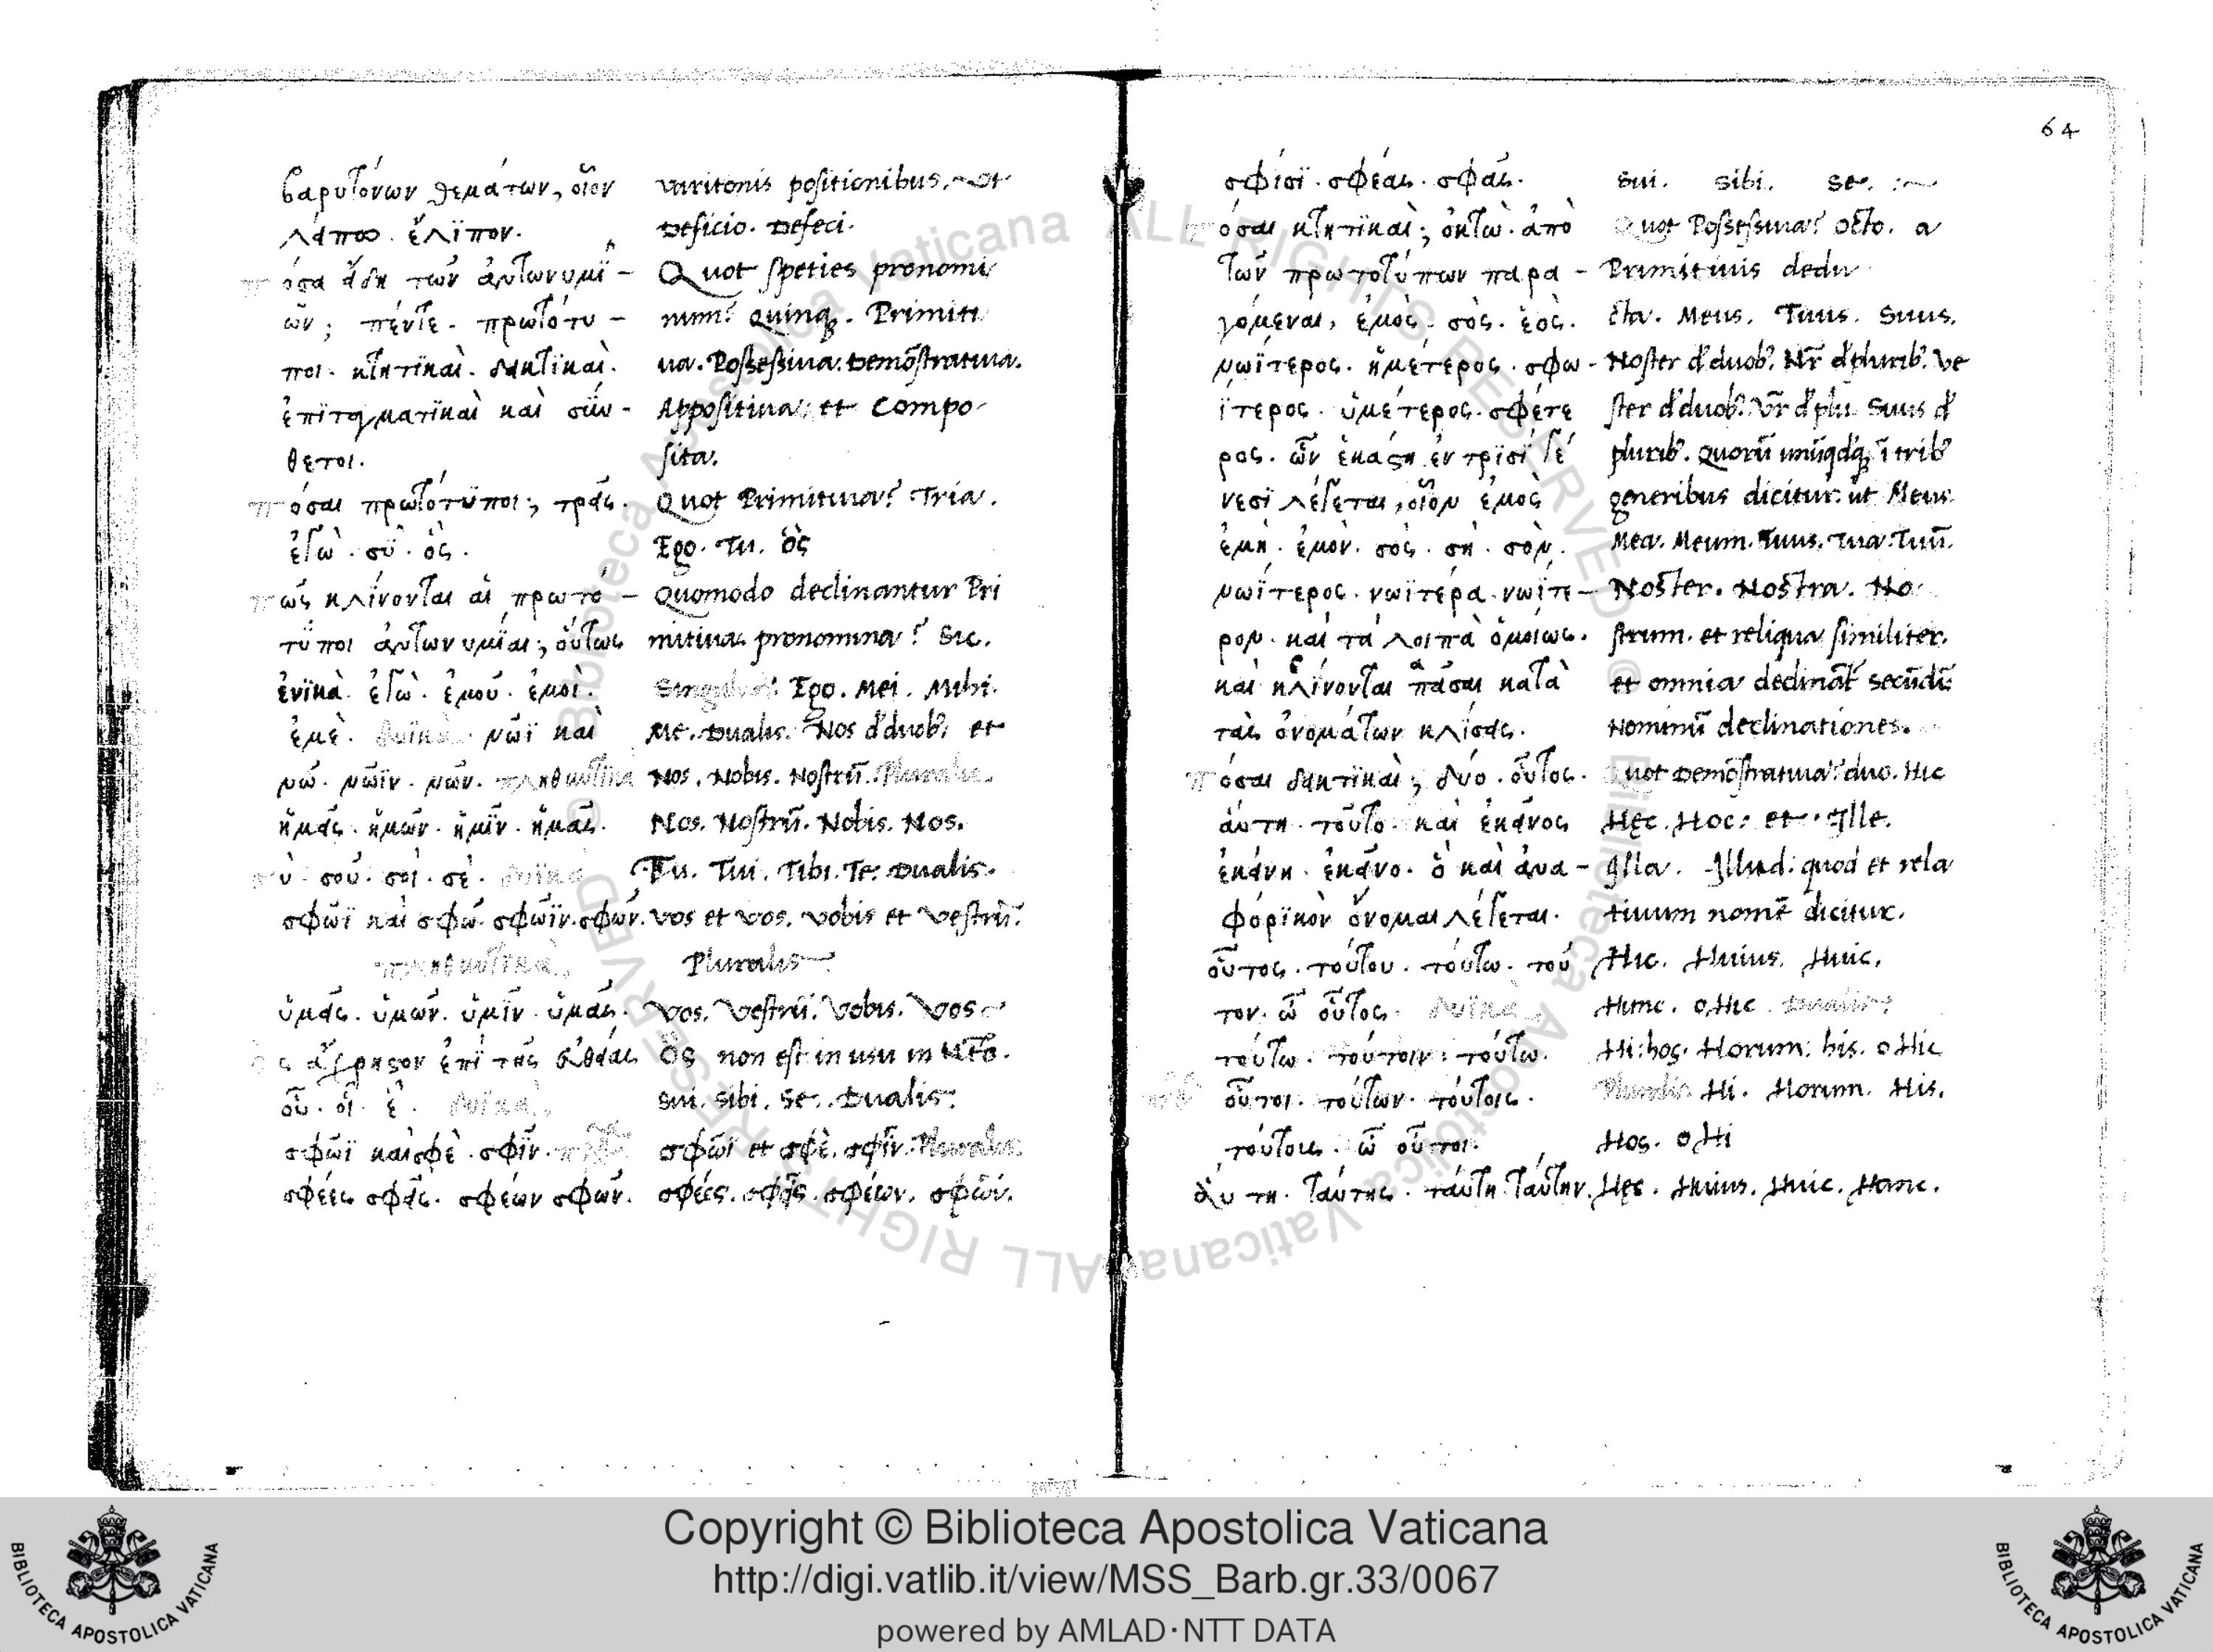 64
βαρυτόνων θεμάτων, οἷον
λείπω. ἔλιπον.
πόσα εἴδη τῶν ἀντωνυμι-
ῶν; πέντε. πρωτότυ-
ποι. κτητικαὶ. δεικτικαὶ.
ἐπιταγματικαὶ καὶ σύν-
θετοι.
πόσαι πρωτότυποι; τρεῖς.
ἐγὼ. σὺ. ὃς.
πῶς κλίνονται αἱ πρωτό-
τυποι ἀντωνυμίαι; οὕτως
ἑνικὰ. ἐγὼ. ἐμοῦ. ἐμοὶ.
ἐμὲ. δυϊκὰ. νῶϊ καὶ
νώ. νῶϊν. νῶν. πληθυντικὰ
ἡμεῖς. ἡμῶν. ἡμῖν. ἡμᾶς.
σὺ. σοῦ. σοὶ. σὲ. δυϊκὰ
σφῶϊ καὶ σφώ. σφῶϊν. σφῶν.
πληθυντικὰ.
ὑμεῖς. ὑμῶν. ὑμῖν. ὑμᾶς.
ὃς ἄχρηστον ἐπὶ τῆς εὐθείας
οὗ. οἷ. ἓ. δυϊκὰ.
σφῶϊ καὶ σφὲ. σφῖν.
σφέες σφεῖς. σφέων σφῶν.
varitonis positionibus. vt
Deficio. Defeci.
Quot speties pronomi
num? Quinq. Primiti
ua. Possessiua. Demõstratiua.
Appositiua. et Compo
sita.
Quot Primitiua? Tria.
Ego. Tu. ὃς
Quomodo declinantur Pri
mitiua pronomina? Sic.
Singulari: Ego. Mei. Mihi.
Me. Dualis. Nos d' duob. et
Nos. Nobis. Nostrũ. Pluralis.
Nos. Nostrũ. Nobis. Nos.
Tu. Tui. Tibi. Te. Dualis.
vos et vos. vobis et vestrũ.
Pluralis
Vos. Vestrũ. Vobis. Vos
ὃς non est in usu in Ntõ.
sui. sibi. Se. Dualis:
σφῶϊ et σφὲ. σφῖν. Pluralis.
σφέες. σφεῖς. σφέων. σφῶν.
σφίσι. σφέας. σφᾶς.
πόσαι κτητικαὶ; ὀκτὼ. ἀπὸ
τῶν πρωτοτύπων παρα-
γόμεναι, ἐμὸς. σὸς. ἑὸς.
νωΐτερος. ἡμέτερος. σφω-
ΐτερος. ὑμέτερος. σφέτε
ρος. ὧν ἑκάστη ἐν τρισὶ γέ
νεσι λέγεται, οἷον ἐμὸς
ἐμὴ. ἐμὸν. σὸς. σὴ. σὸν.
νωΐτερος. νωϊτέρα. νωΐτε-
ρον. καὶ τὰ λοιπὰ ὁμοίως.
καὶ κλίνονται πᾶσαι κατὰ
τὰς ὀνομάτων κλίσεις.
πόσαι δεικτικαὶ; δύο. οὗτος.
αὕτη. τοῦτο. καὶ ἐκεῖνος
ἐκείνη. ἐκεῖνο. ὃ καὶ ἀνα-
φορικὸν ὄνομαι λέγεται.
οὗτος. τούτου. τούτω. τοῦ
τον. ὦ οὗτος. δυϊκὰ.
τούτω. τούτοιν. τούτω.
οὗτοι. τούτων. τούτοις.
τούτους. ὦ οὗτοι.
αὕτη. ταύτης. ταύτη. ταύτην.
sui. sibi. se.
Quot Possessiua? octo. a
Primitiuis dedu
cta. Meus. Tuus. Suus.
Noster d' duob. Nr d' plurib. Ve
ster d' duob. Vr d' plu. Suus d'
plurib. Quorũ unũqdq, ĩ trib
generibus dicitur. ut Meus
Mea. Meum. Tuus. tua. tuũ.
Noster. Nostra. No
strum. et reliqua similiter.
et omnia declinãt secũdũ
Nominũ declinationes.
Quot Demõstratiua? duo. Hic
Hęc. Hoc: et Ille.
Illa. Illud: quod et rela
tiuum nomẽ dicitur.
Hic. Huius. Huic.
Hunc. o Hic. Dualis:
Hi: hos. Horum: his. o Hi
Pluralis. Hi. Horum. His.
Hos. o Hi
Hęc. Huius. Huic. Hanc.
© Biblioteca Apostolica Vaticana ALL RIGHTS RESERVED © Biblioteca Apostolica Vaticana ALL RIGHTS RESERVED
Copyright © Biblioteca Apostolica Vaticana
http://digi.vatlib.it/view/MSS_Barb.gr.33/0067
powered by AMLAD·NTT DATA
BIBLIOTECA APOSTOLICA VATICANA
BIBLIOTECA APOSTOLICA VATICANA